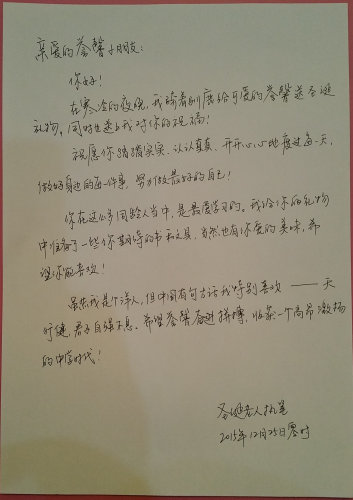 亲爱的誉馨小朋友：
你好！
在寒冷的夜晚，我骑着驯鹿给可爱的誉馨送圣诞
礼物，同时也送上我对你的祝福！
祝愿你踏踏实实、认认真真、开开心心地度过每一天，
做好身边的每一件事，努力做最好的自己！
你在这么多同龄人当中，是最爱学习的。我给你的礼物
中准备了一些你期待的书和文具，当然也有你爱的美味，希
望你能喜欢！
虽然我是个洋人，但中国有句古话我特别喜欢——天
行健，君子自强不息。希望誉馨奋进拼搏，收获一个高昂激扬
的中学时代！
圣诞老人执笔
2015年12月25日零时